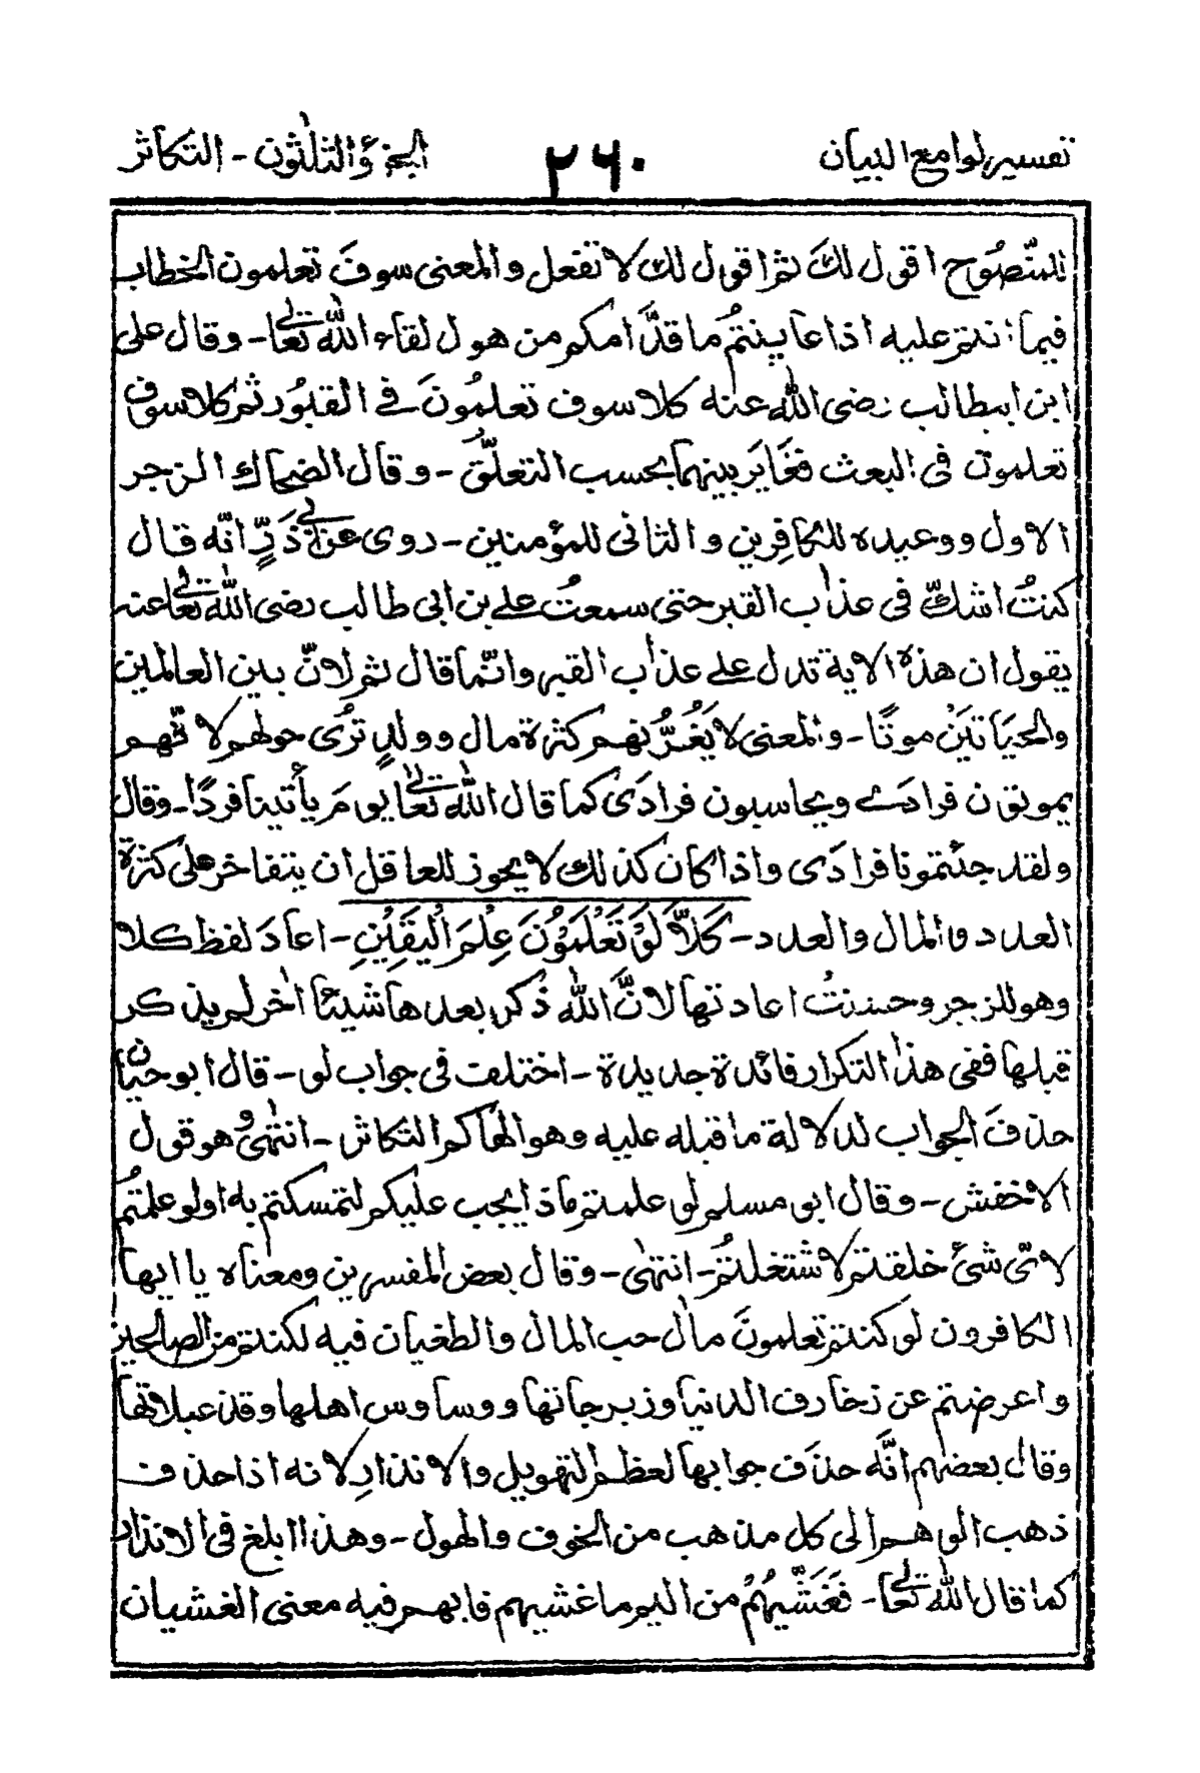 تفسير لوامع البيان
٢٦٠
الجزء والثلثون - التكاثر
للمنصوح اقول لك ثم اقول لك لا تفعل والمعنى سوف تعلمون الخطاب
فيما انتم عليه اذا عاينتم ما قدّامكم من هول لقاء الله تعالى - وقال على
ابن ابيطالب رضى الله عنه كلا سوف تعلمُونَ فى القبُور ثم كلا سوف
تعلمون فى البعث فغَايَر بينهما بحسب التعلّق - وقال الضحاك الزجر
الاول ووعيده للكافِرين والثانى للمؤمنين - روى عن ابى ذَرٍّ انّه قال
كنتُ اشكّ فى عذاب القبر حتى سمعتُ على بن ابى طالب رضى الله تعالى عنه
يقول ان هذه الاية تدل على عذاب القبر وانّما قال ثم لانّ بين العالمين
والحيَاتَيْن موتًا - والمعنى لا يَغُرُّنهم كثرة مال وولدٍ تُرٰى حولهم لانّهم
يموتون فرادى ويحاسبون فرادَى كما قال الله تعالى يومَ يأتينا فردًا - وقال
ولقد جئتمونا فرادَى واذا كان كذلك لا يجوز للعاقل ان يتفاخر على كثرة
العدد والمال والعدد - كَلاَّ لَوْ تَعْلَمُوْنَ عِلْمَ الْيَقِيْنِ - اعادَ لفظ كلا
وهو للزجر وحسنتُ اعادتها لانَّ الله ذكر بعدها شيئًا اٰخر لم يذكر
قبلها ففى هذا التكرار فائدة جديدة - اختلف فى جواب لو - قال ابو حيّان
حذفَ الجواب لدلالة ما قبله عليه وهو الهٰاكم التكاثر - انتهٰى وهو قول
الاخفش - وقال ابو مسلم لو علمتم ماذا يجب عليكم لتمسكتم به او لو علمتُم
لاىّ شئ خلقتم لاشتغلتُم - انتهٰى - وقال بعض المفسرين ومعناه يا ايها
الكافرون لو كنتم تعلمونَ مآل حب المال والطغيان فيه لكنتم من الصالحين
واعرضتم عن زخارف الدنيا وزبرجاتها ووساوس اهلها وقذ عبلاتها
وقال بعضهم انَّه حذَف جوابها لعظم التهويل والانذارِ لانه اذا حذف
ذهب الوهم الى كل مذهب من الخوف والهول - وهذا ابلغ فى الانذار
كما قال الله تعالى - فَغَشِّيَهُمْ من اليم ما غشيهم فابهم فيه معنى الغشيان